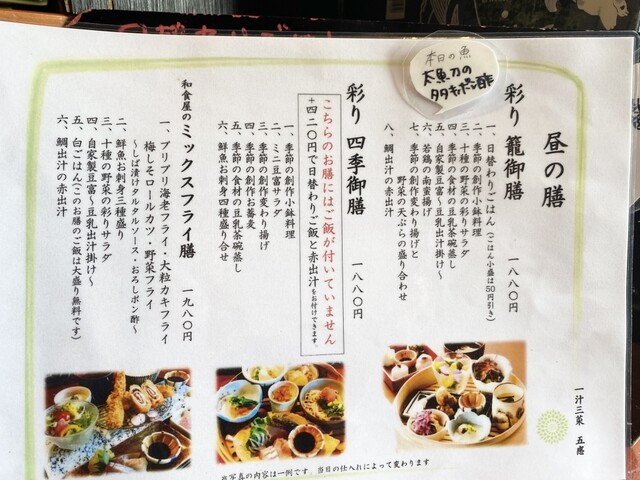 本日の魚
太刀魚の
タタキポン酢
昼の膳
彩り 籠御膳 一八八〇円
一、日替わりごはん(ごはん小盛は50円引き)
二、季節の創作小鉢料理
三、十種の野菜の彩りサラダ
四、季節の食材の豆乳茶碗蒸し
五、自家製豆富~豆乳出汁掛け~
六、若鶏の南蛮揚げ
七、季節の創作変わり揚げと
野菜の天ぷらの盛り合わせ
八、鯛出汁の赤出汁
彩り 四季御膳 一八八〇円
こちらのお膳にはご飯が付いていません
+四二〇円で日替わりご飯と赤出汁をお付けできます。
一、季節の創作小鉢料理
二、ミニ豆富サラダ
三、季節の創作変わり揚げ
四、季節の創作お蕎麦
五、季節の食材の豆乳茶碗蒸し
六、鮮魚お刺身四種盛り合せ
和食屋のミックスフライ膳 一九八〇円
一、プリプリ海老フライ・大粒カキフライ
梅しそロールカツ・野菜フライ
~しば漬けタルタルソース・おろしポン酢~
二、鮮魚お刺身三種盛り
三、十種の野菜の彩りサラダ
四、自家製豆富~豆乳出汁掛け~
五、白ごはん(このお膳のご飯は大盛り無料です)
六、鯛出汁の赤出汁
一汁三菜 五感
※写真の内容は一例です。当日の仕入れによって変わります